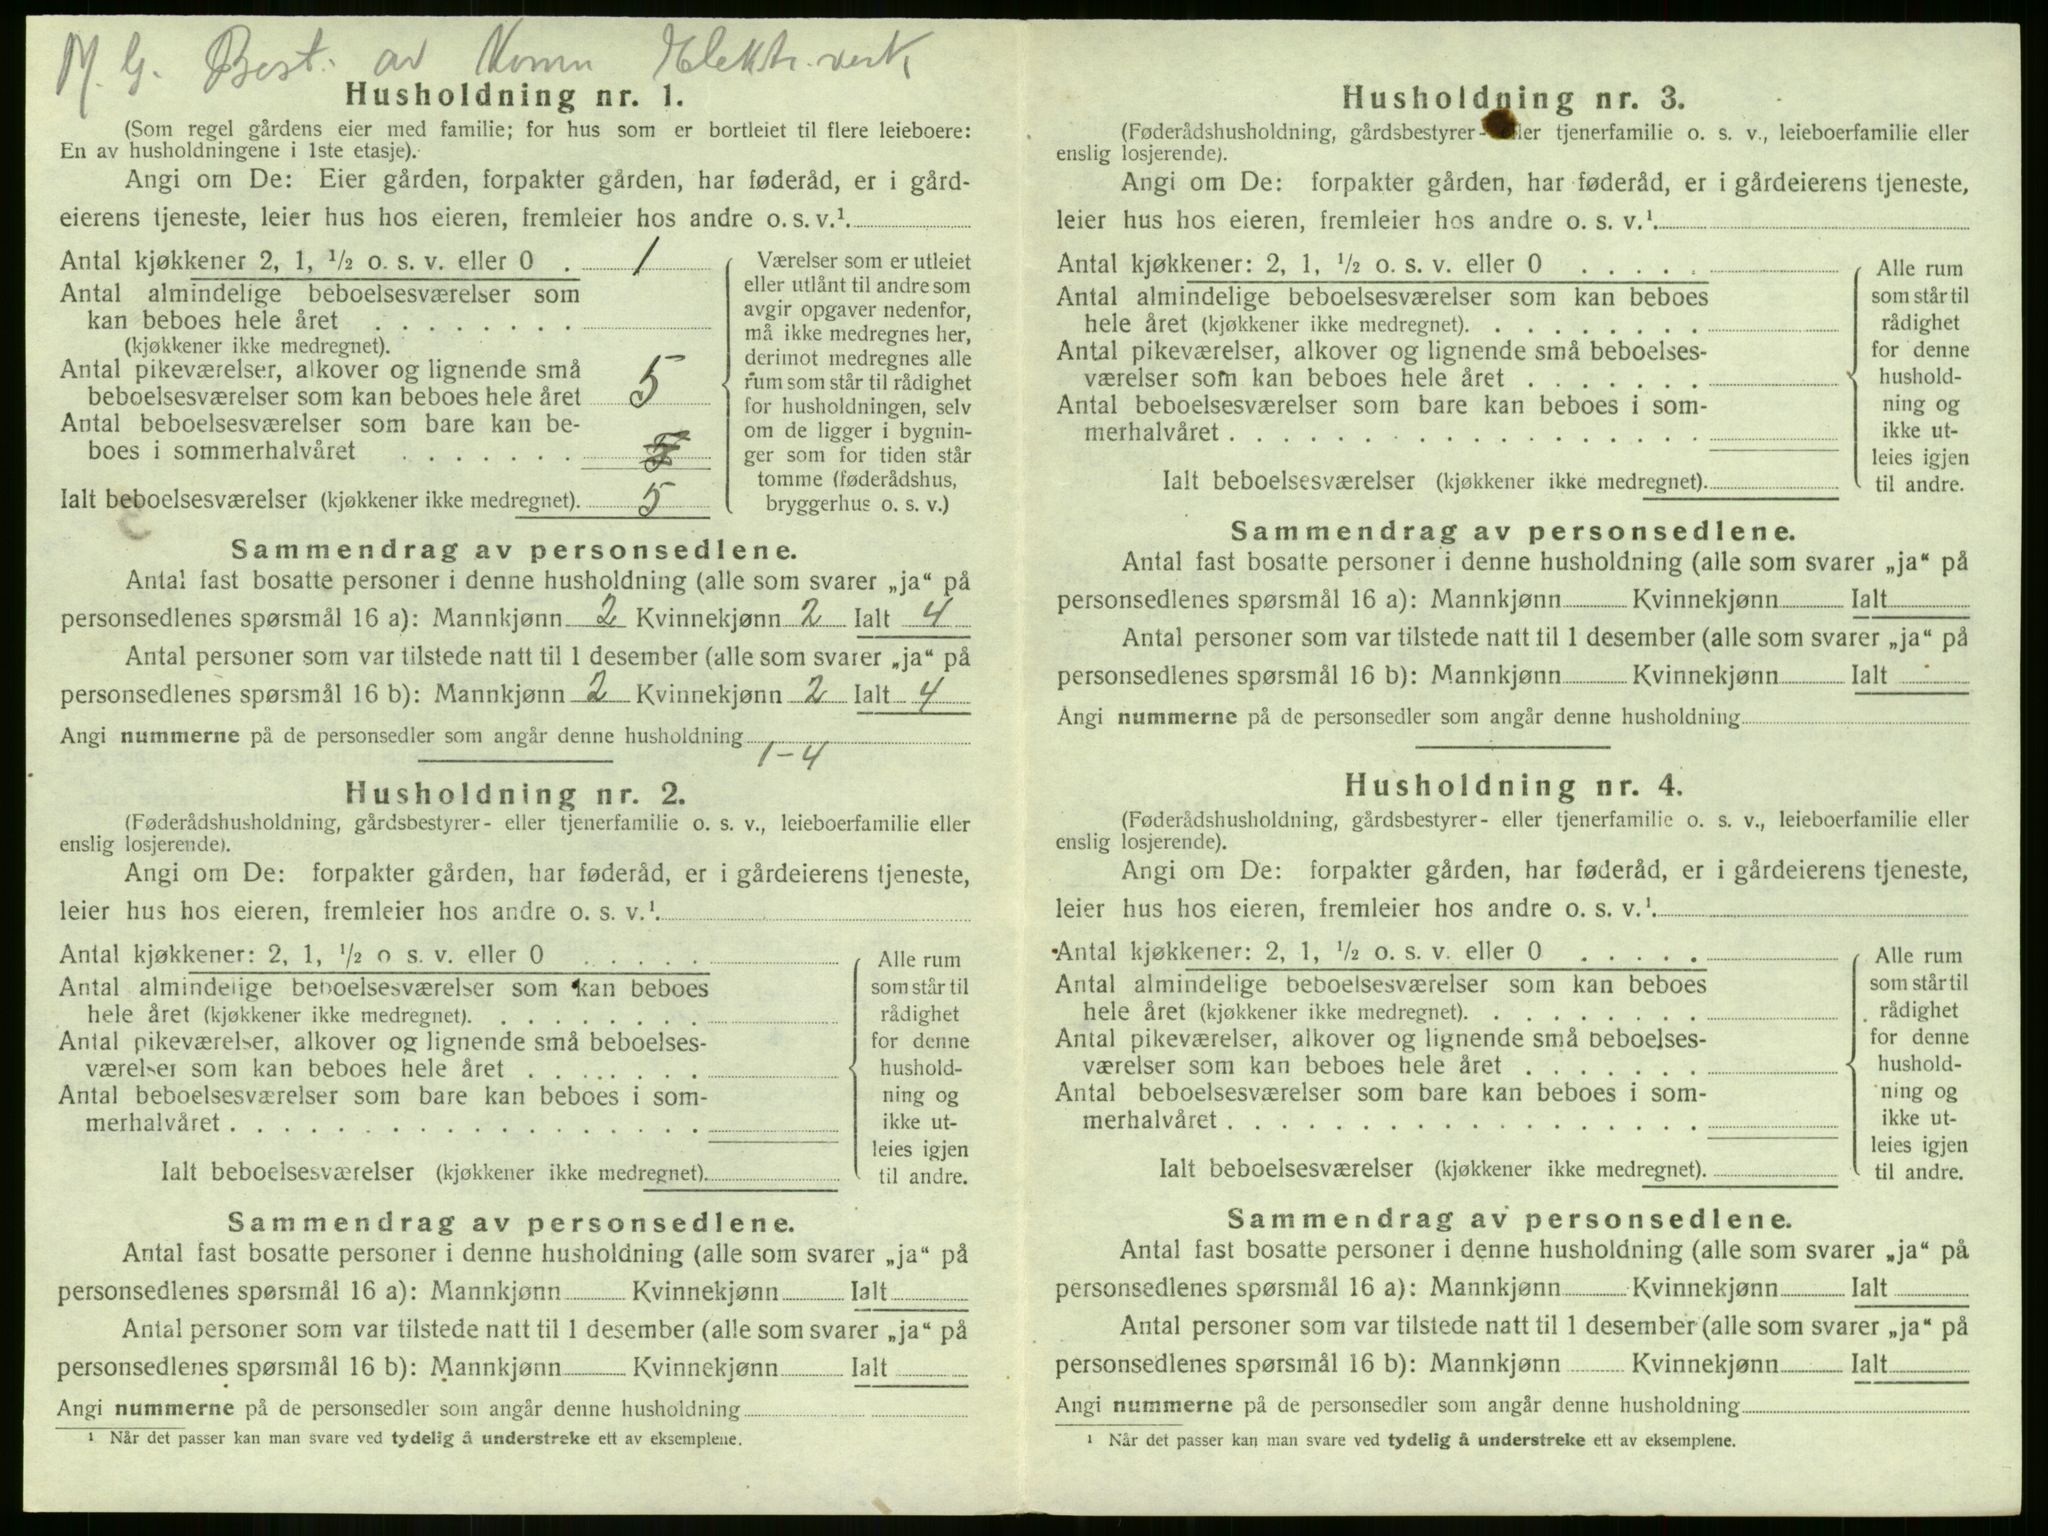 M. G. Best. av Komm Elektr.verk,
Husholdning nr. 1.
(Som regel gårdens eier med familie; for hus som er bortleiet til flere leieboere:
En av husholdningene i 1ste etasje).
Angi om De: Eier gården, forpakter gården, har føderåd, er i gård-
eierens tjeneste, leier hus hos eieren, fremleier hos andre o. s. v.¹.
Antal kjøkkener 2, 1, ½ o. s. v. eller 0 . 1
Antal almindelige beboelsesværelser som
kan beboes hele året . . . . . . . .
(kjøkkener ikke medregnet).
Antal pikeværelser, alkover og lignende små
beboelsesværelser som kan beboes hele året 5
Antal beboelsesværelser som bare kan be-
boes i sommerhalvåret . . . . . . .
Ialt beboelsesværelser (kjøkkener ikke medregnet). 5
Værelser som er utleiet
eller utlånt til andre som
avgir opgaver nedenfor,
må ikke medregnes her,
derimot medregnes alle
rum som står til rådighet
for husholdningen, selv
om de ligger i bygnin-
ger som for tiden står
tomme (føderådshus,
bryggerhus o. s. v.)
Sammendrag av personsedlene.
Antal fast bosatte personer i denne husholdning (alle som svarer „ja“ på
personsedlenes spørsmål 16 a): Mannkjønn 2 Kvinnekjønn 2 Ialt 4
Antal personer som var tilstede natt til 1 desember (alle som svarer „ja“ på
personsedlenes spørsmål 16 b): Mannkjønn 2 Kvinnekjønn 2 Ialt 4
Angi nummerne på de personsedler som angår denne husholdning
1-4
Husholdning nr. 2.
(Føderådshusholdning, gårdsbestyrer- eller tjenerfamilie o. s. v., leieboerfamilie eller
enslig losjerende).
Angi om De: forpakter gården, har føderåd, er i gårdeierens tjeneste,
leier hus hos eieren, fremleier hos andre o. s. v.¹.
Antal kjøkkener: 2, 1, ½ o s. v. eller 0 . . . . .
Antal almindelige beboelsesværelser som kan beboes
hele året (kjøkkener ikke medregnet). . . . . . . . .
Antal pikeværelser, alkover og lignende små beboelses-
værelser som kan beboes hele året . . . . . . .
Antal beboelsesværelser som bare kan beboes i som-
merhalvåret . . . . . . . . . . . . . . . . . .
Ialt beboelsesværelser (kjøkkener ikke medregnet).
Alle rum
som står til
rådighet
for denne
hushold-
ning og
ikke ut-
leies igjen
til andre.
Sammendrag av personsedlene.
Antal fast bosatte personer i denne husholdning (alle som svarer „ja“ på
personsedlenes spørsmål 16 a): Mannkjønn Kvinnekjønn Ialt
Antal personer som var tilstede natt til 1 desember (alle som svarer „ja“ på
personsedlenes spørsmål 16 b): Mannkjønn Kvinnekjønn Ialt
Angi nummerne på de personsedler som angår denne husholdning
¹ Når det passer kan man svare ved tydelig å understreke ett av eksemplene.
Husholdning nr. 3.
(Føderådshusholdning, gårdsbestyrer- eller tjenerfamilie o. s. v., leieboerfamilie eller
enslig losjerende).
Angi om De: forpakter gården, har føderåd, er i gårdeierens tjeneste,
leier hus hos eieren, fremleier hos andre o. s. v.¹.
Antal kjøkkener: 2, 1, ½ o. s. v. eller 0 . . . . .
Antal almindelige beboelsesværelser som kan beboes
hele året (kjøkkener ikke medregnet). . . . . . . . .
Antal pikeværelser, alkover og lignende små beboelses-
værelser som kan beboes hele året . . . . . . .
Antal beboelsesværelser som bare kan beboes i som-
merhalvåret . . . . . . . . . . . . . . . . . .
Ialt beboelsesværelser (kjøkkener ikke medregnet).
Alle rum
som står til
rådighet
for denne
hushold-
ning og
ikke ut-
leies igjen
til andre.
Sammendrag av personsedlene.
Antal fast bosatte personer i denne husholdning (alle som svarer „ja“ på
personsedlenes spørsmål 16 a): Mannkjønn Kvinnekjønn Ialt
Antal personer som var tilstede natt til 1 desember (alle som svarer „ja“ på
personsedlenes spørsmål 16 b): Mannkjønn Kvinnekjønn Ialt
Angi nummerne på de personsedler som angår denne husholdning
Husholdning nr. 4.
(Føderådshusholdning, gårdsbestyrer- eller tjenerfamilie o. s. v., leieboerfamilie eller
enslig losjerende).
Angi om De: forpakter gården, har føderåd, er i gårdeierens tjeneste,
leier hus hos eieren, fremleier hos andre o. s. v.¹.
Antal kjøkkener: 2, 1, ½ o. s. v. eller 0 . . . . .
Antal almindelige beboelsesværelser som kan beboes
hele året (kjøkkener ikke medregnet). . . . . . . . .
Antal pikeværelser, alkover og lignende små beboelses-
værelser som kan beboes hele året . . . . . . .
Antal beboelsesværelser som bare kan beboes i som-
merhalvåret . . . . . . . . . . . . . . . . . .
Ialt beboelsesværelser (kjøkkener ikke medregnet).
Alle rum
som står til
rådighet
for denne
hushold-
ning og
ikke ut-
leies igjen
til andre.
Sammendrag av personsedlene.
Antal fast bosatte personer i denne husholdning (alle som svarer „ja“ på
personsedlenes spørsmål 16 a): Mannkjønn Kvinnekjønn Ialt
Antal personer som var tilstede natt til 1 desember (alle som svarer „ja“ på
personsedlenes spørsmål 16 b): Mannkjønn Kvinnekjønn Ialt
Angi nummerne på de personsedler som angår denne husholdning
¹ Når det passer kan man svare ved tydelig å understreke ett av eksemplene.